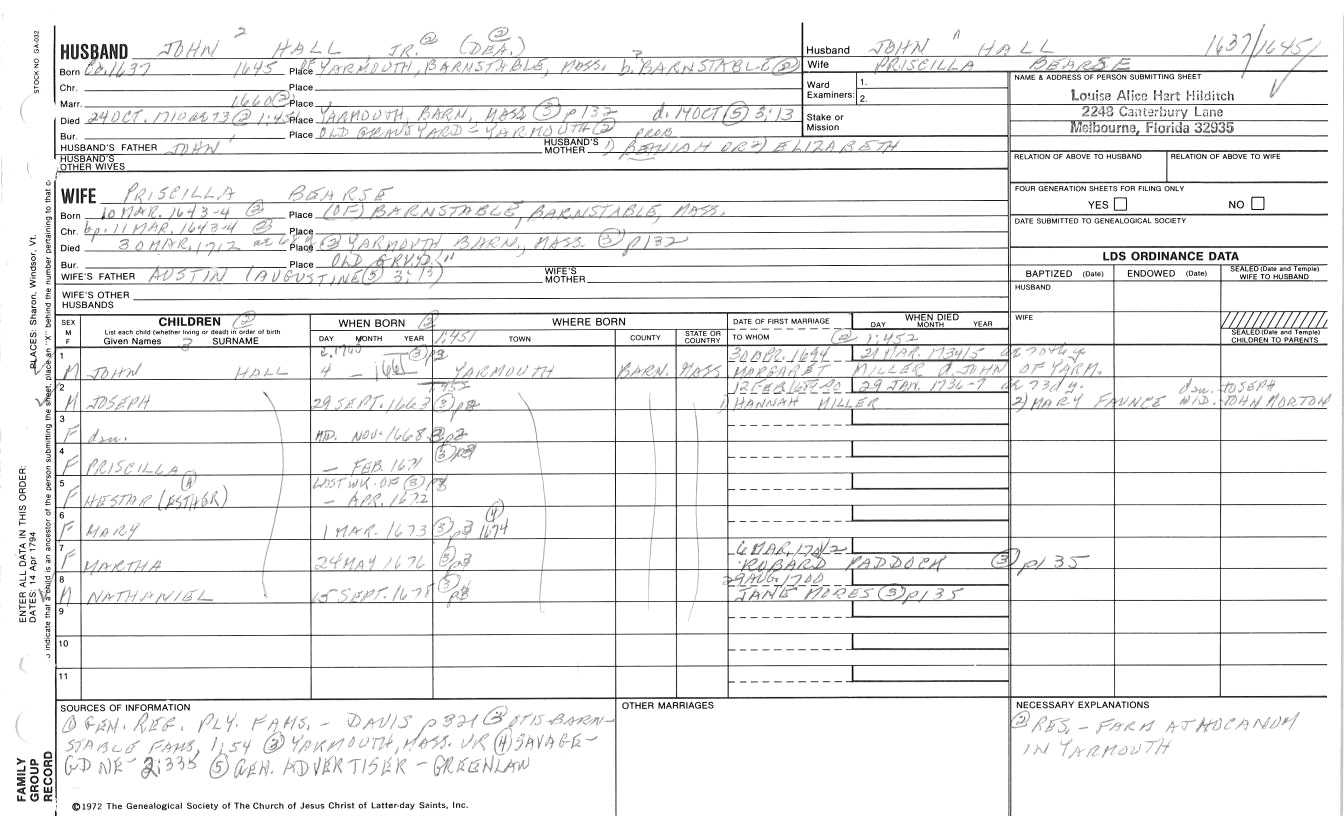 STOCK NO. GA-032
HUSBAND JOHN 2 HALL JR. ② (DEA.)
Born Ca. 1637 1645 Place OF YARMOUTH, BARNSTABLE, MASS. b. BARNSTABLE ②
Chr. Place
Marr. 1660 ② Place
Died 24 OCT. 1710 ae 73 ② Place YARMOUTH, BARN, MASS ③ p132 d. 14 OCT ⑤ 3:13
Bur. Place OLD GRAVEYARD - YARMOUTH ② prob
HUSBAND'S FATHER JOHN 1 HUSBAND'S MOTHER 1) BETHIAH OR 2) ELIZABETH
HUSBAND'S OTHER WIVES
Husband JOHN HALL 1637/1645
Wife PRISCILLA BEARSE
Ward Examiners: 1. 2.
Stake or Mission
NAME & ADDRESS OF PERSON SUBMITTING SHEET
Louise Alice Hart Hilditch
2248 Canterbury Lane
Melbourne, Florida 32935
RELATION OF ABOVE TO HUSBAND RELATION OF ABOVE TO WIFE
FOUR GENERATION SHEETS FOR FILING ONLY
YES NO
DATE SUBMITTED TO GENEALOGICAL SOCIETY
WIFE PRISCILLA BEARSE
Born 10 MAR. 1643-4 ② Place (OF) BARNSTABLE, BARNSTABLE, MASS.
Chr. bp. 11 MAR. 1643-4 ② Place
Died 30 MAR. 1712 Place ② YARMOUTH BARN., MASS. ③ p132
Bur. Place OLD GRVYD. "
WIFE'S FATHER AUSTIN (AUGUSTINE ⑤ 3:13) WIFE'S MOTHER
WIFE'S OTHER HUSBANDS
LDS ORDINANCE DATA
BAPTIZED (Date) ENDOWED (Date) SEALED (Date and Temple) WIFE TO HUSBAND
HUSBAND
WIFE
SEALED (Date and Temple) CHILDREN TO PARENTS
SEX M F CHILDREN ② List each child (whether living or dead) in order of birth Given Names 3 SURNAME
WHEN BORN ② DAY MONTH YEAR 1:451
WHERE BORN TOWN COUNTY STATE OR COUNTRY
DATE OF FIRST MARRIAGE TO WHOM
WHEN DIED DAY MONTH YEAR ② 1:452
1 M JOHN HALL 4 - 1661 ③ YARMOUTH BARN. MASS 30 APR. 1694 MARGARET MILLER d. JOHN OF YARM. 21 MAR. 1734/5 ae 70th y
2 M JOSEPH 29 SEPT. 1663 ③ 12 FEB 1689-90 1) HANNAH MILLER 29 JAN. 1736-7 ae 73d y. dau. JOSEPH
2) MARY FAUNCE WID. JOHN MORTON
3 F dau. MID. NOV. 1668 p2
4 F PRISCILLA - FEB. 1671 ③
5 F HESTAR (ESTHER) ④ LAST WK. OF - APR. 1672 ③
6 F MARY 1 MAR. 1673 ③ p3 ④ 1674
7 F MARTHA 24 MAY 1676 ③ p3 6 MAR. 1701/2 ROBARD PADDOCK ③ p135
8 M NATHANIEL 15 SEPT. 1678 ③ 29 AUG. 1700 JANE MORES ③ p135
9
10
11
SOURCES OF INFORMATION
① GEN. REG. PLY. FAMS. - DAVIS p321 ② OTIS BARN-
STABLE FAMS, 1,54 ③ YARMOUTH, MASS. VR ④ SAVAGE-
GD NE- 2:335 ⑤ GEN. ADVERTISER - GREENLAW
OTHER MARRIAGES
NECESSARY EXPLANATIONS
② RES. - FARM AT HOCANUM
IN YARMOUTH
©1972 The Genealogical Society of The Church of Jesus Christ of Latter-day Saints, Inc.
ENTER ALL DATA IN THIS ORDER:
DATES: 14 Apr 1794
PLACES: Sharon, Windsor, Vt.
to indicate that a child is an ancestor of the person submitting the sheet, place an "X" behind the number pertaining to that c
FAMILY GROUP RECORD